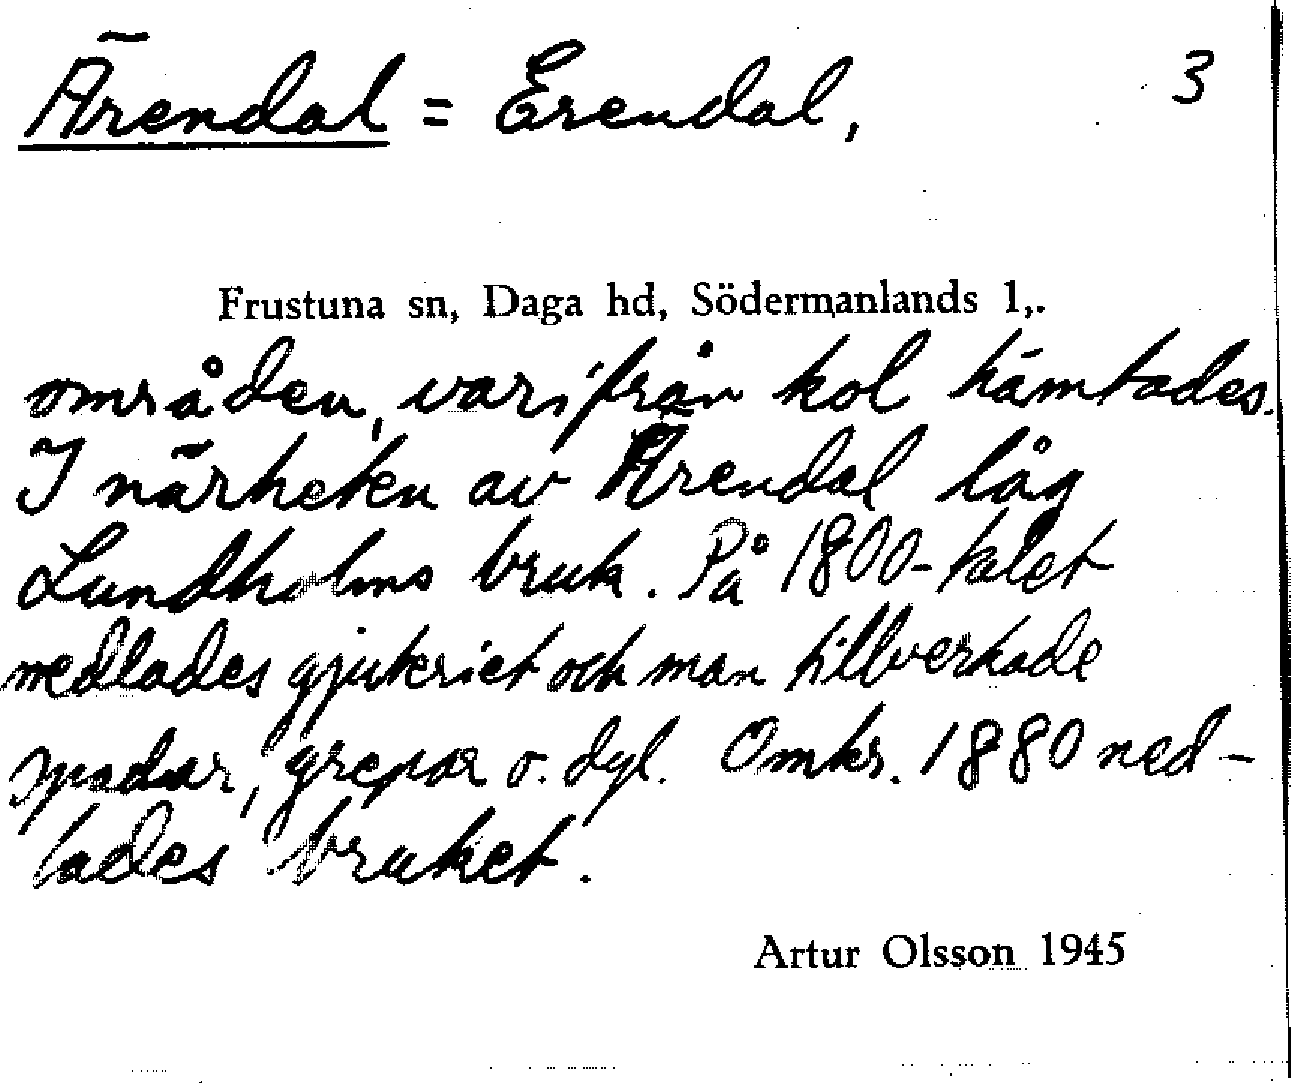 Ärendal = Erendal, 3
Frustuna sn, Daga hd, Södermanlands l,.
områden, varifrån kol hämtades.
I närheten av Ärendal låg
Lundholms bruk. På 1800-talet
nedlades gjuteriet och man tillverkade
spadar, grepar o. dyl. Omkr. 1880 ned-
lades bruket.
Artur Olsson 1945